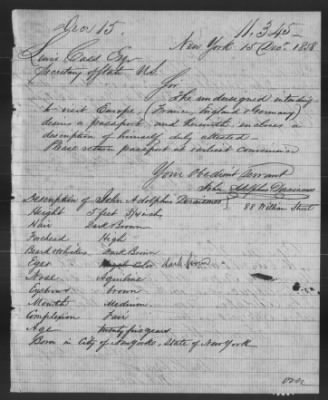 Dec 15.
11.345-
New York 15 Dec. 1858
Lewis Cass Esqr
Secretary of State U.S.
Sir
The undersigned intending
to visit Europe, (France, England & Germany)
desires a passport, and herewith encloses a
description of himself, duly attested.
Please return passport at earliest convenience
Your Obedient Servant
John Adolphus
88 William Street
Description of John Adolphus
Height 5 feet inch
Hair Dark Brown
Forehead High
Beard & Whiskers Dark Brown
Eyes color dark
Nose Aquiline
Eyebrows brown
Mouth Medium
Complexion Fair
Age twenty five years
Born in City of New York, State of New York
over